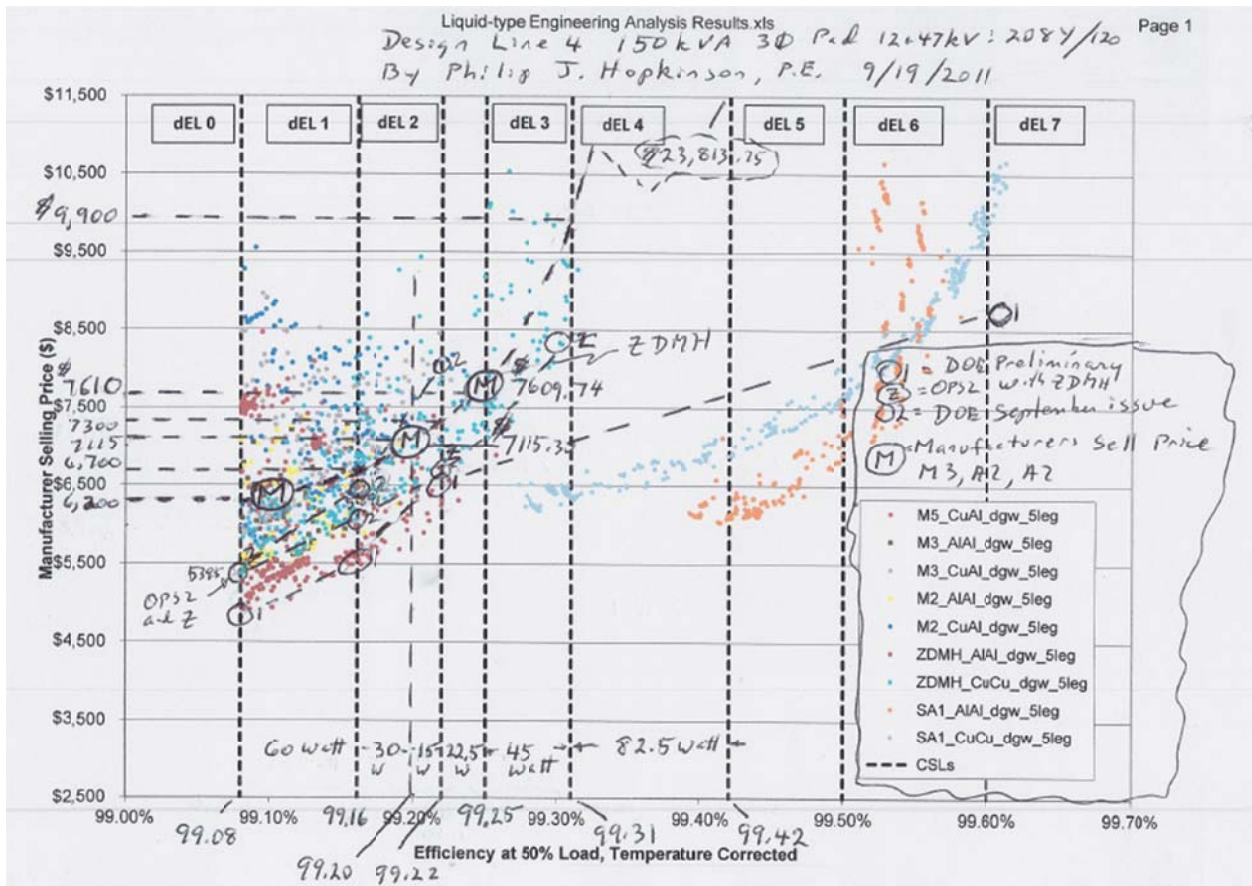 Liquid-type Engineering Analysis Results.xls
Page 1
Design Line 4 150kVA 3Φ Pad 12.47kV: 208Y/120
By Philip J. Hopkinson, P.E. 9/19/2011
$11,500
dEL 0 dEL 1 dEL 2 dEL 3 dEL 4 dEL 5 dEL 6 dEL 7
$23,813.75
$10,500
$9,900
$9,500
$8,500
ZDMH
$7610
$7609.74
$7,500
7300
7115
$7115.35
6,700
$6,500
6,200
$5,500
5395
OPS2
and Z
$4,500
$3,500
$2,500
Manufacturer Selling Price ($)
M
M
M
1
2
Z
1 = DOE Preliminary
Z = OPS2 with ZDMH
2 = DOE September issue
M = Manufacturers Sell Price
M3, A2, A2
M5_CuAl_dgw_5leg
M3_AlAl_dgw_5leg
M3_CuAl_dgw_5leg
M2_AlAl_dgw_5leg
M2_CuAl_dgw_5leg
ZDMH_AlAl_dgw_5leg
ZDMH_CuCu_dgw_5leg
SA1_AlAl_dgw_5leg
SA1_CuCu_dgw_5leg
CSLs
60 watt 30 w 15 w 22.5 w 45 watt 82.5 watt
99.00% 99.10% 99.20% 99.30% 99.40% 99.50% 99.60% 99.70%
99.08 99.16 99.25 99.31 99.42
99.20 99.22
Efficiency at 50% Load, Temperature Corrected